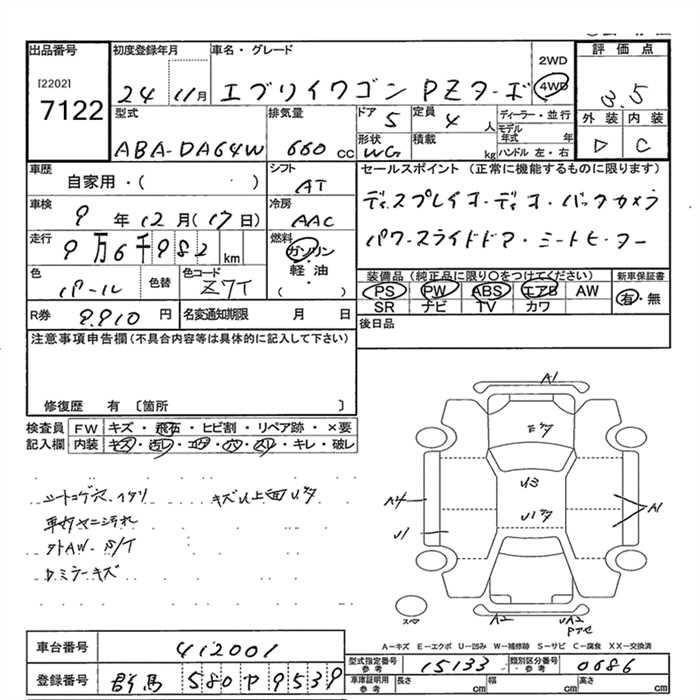 出品番号
[2202]
7122
初度登録年月
24 11月
車名・グレード
エブリイワゴン PZターボ
2WD
4WD
評価点
3.5
型式
ABA-DA64W
排気量
660 CC
ドア
5
定員
4 人
形状
WG
積載
kg
ディーラー・並行
モデル年式 年
ハンドル 左・右
外装 内装
D C
車歴
自家用・( )
シフト
AT
車検
9 年 12 月 (17 日)
冷房
AAC
走行
9万6千982 km
燃料
ガソリン
軽油
( )
色
パール
色替
色コード
Z7T
R券
9,910 円
名変通知期限 月 日
セールスポイント (正常に機能するものに限ります)
ディスプレイオーディオ・バックカメラ
パワースライドドア・シートヒーター
装備品 (純正品に限り○をつけてください)
PS PW ABS エアB AW
SR ナビ TV カワ
新車保証書
有・無
後日品
注意事項申告欄 (不具合内容等は具体的に記入して下さい)
修復歴 有 〔箇所 〕
検査員記入欄
FW キズ・飛石・ヒビ割・リペア跡・×要
内装 キズ・汚レ・コゲ・穴・スリ・キレ・破レ
シートコゲ穴、ヘタリ
キズ
車内ヤニ汚れ
社外AW
ミラーキズ
A1
U3
A4
U1
A1
A2
UA2
スペア
A=キズ E=エクボ U=凹み W=補修跡 S=サビ C=腐食 XX=交換済
車台番号
412001
登録番号
群馬 580 ア 9539
型式指定番号 参考
15133
類別区分番号 参考
0686
車庫証明用 参考
長さ cm
幅 cm
高さ cm